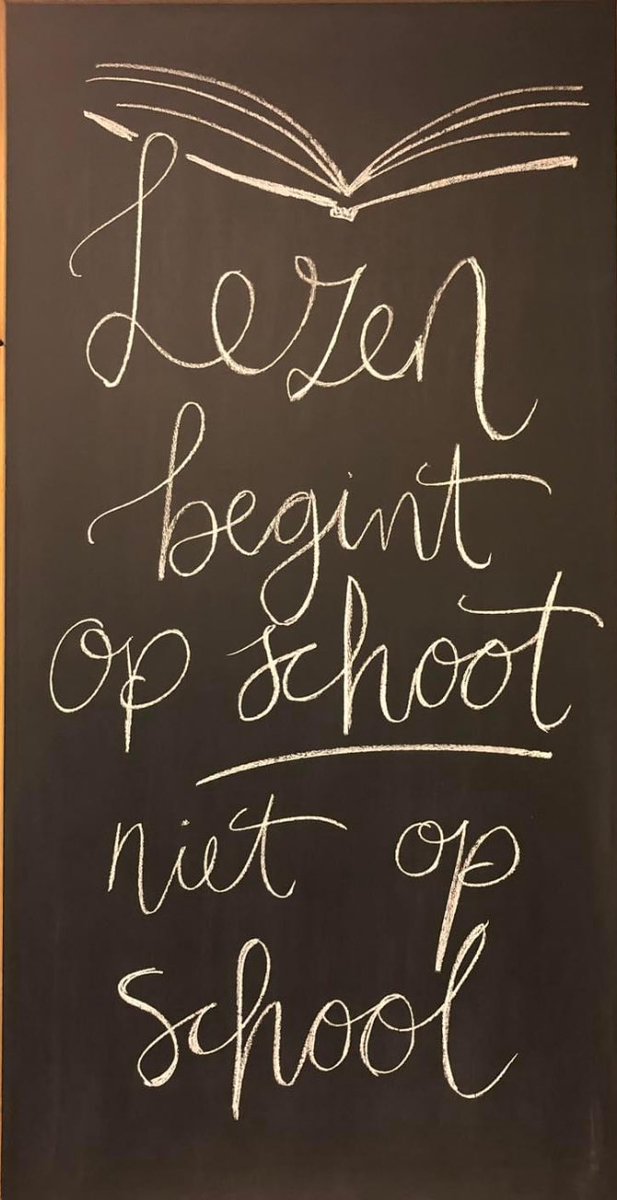 Lezen
begint
op schoot
niet op
school